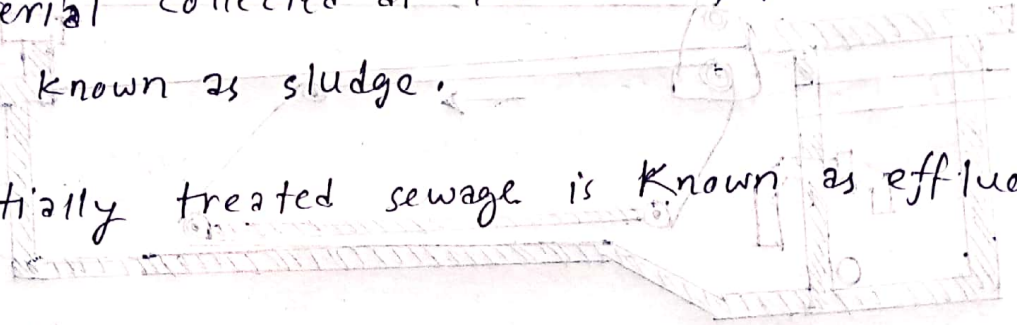 erial collected at
known as sludge.
tially treated sewage is known as efflue